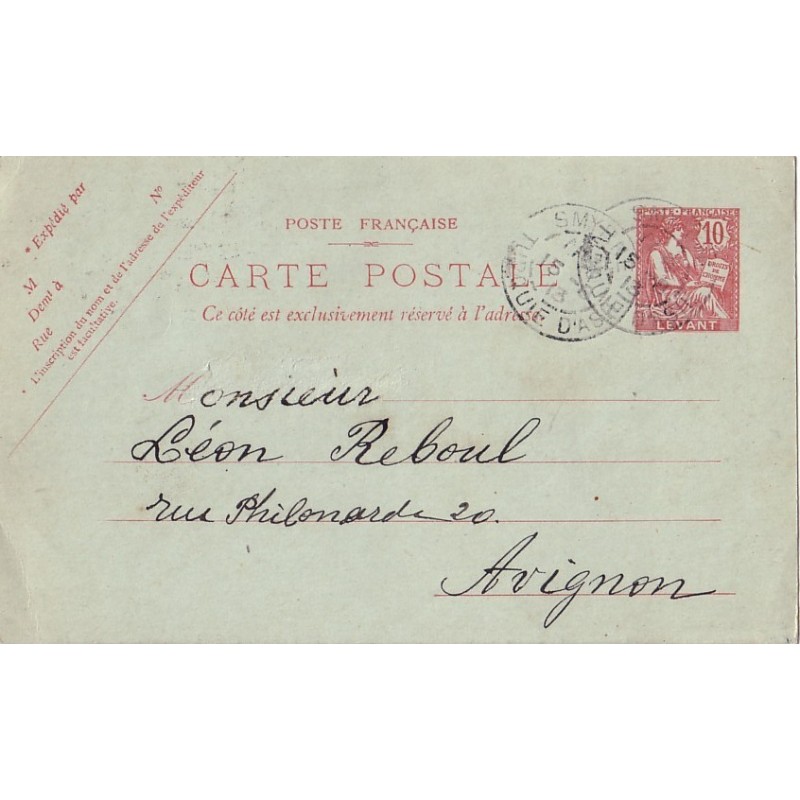 * Expédié par
M
Nº
Demt à
Rue
* L'inscription du nom et de l'adresse de l'expéditeur
est facultative.
POSTE FRANÇAISE
CARTE POSTALE
Ce côté est exclusivement réservé à l'adresse
POSTE FRANÇAISE
10
DROITS DE L'HOMME
LEVANT
SMYRNE
15
13
TURQUIE D'ASIE
15
13
Monsieur
Léon Reboul
rue Philonarde 20.
Avignon